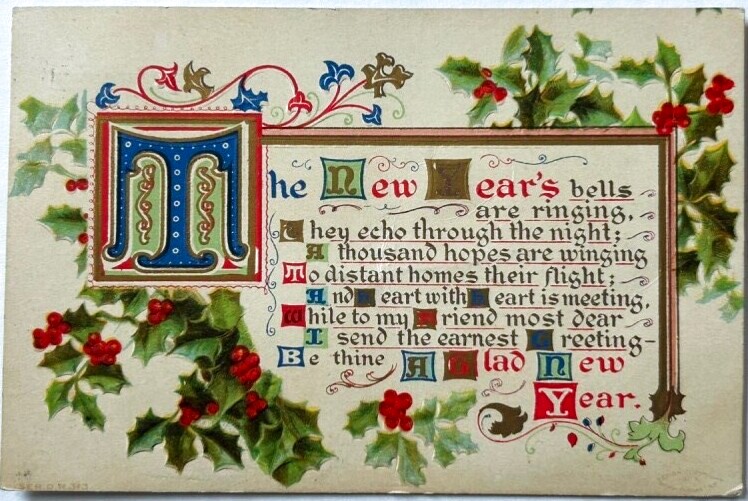 The New Year's bells
are ringing,
They echo through the night;
A thousand hopes are winging
To distant homes their flight;
And Heart with Heart is meeting,
While to my Friend most dear
I send the earnest Greeting-
Be thine A Glad New
Year.